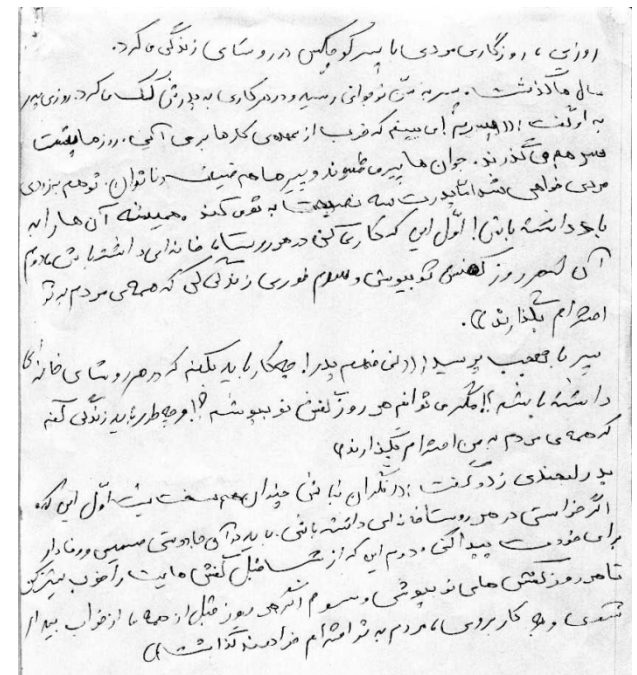 روزی، روزگاری مردی با پسر کوچکش در روستای زندگی می کرد.
سال ها گذشت. پسر به سن نوجوانی رسید و در هر کاری به پدرش کمک می کرد. روزی پدر
به او گفت: ((پسرم! می بینم که خوب از عهده ی کارها بر می آیی. روزها پشت
سر هم می گذرند. جوان ها پیر می شوند و پیرها هم ضعیف و ناتوان. تو هم بزودی
مردی خواهی شد اما پدرت سه نصیحت به تو می کند. همیشه آن ها را به
یاد داشته باش! اوّل این که کاری کن در هر روستا، خانه ای داشته باشی، دوم
آن که هر روز کفش نو بپوشی و سوم طوری زندگی کنی که همه ی مردم به تو
احترام بگذارند)).
پسر با تعجب پرسید: ((نمی فهمم پدر! چه کار باید بکنم که در هر روستای خانه ای
داشته باشم؟! مگر می توانم هر روز کفش نو بپوشم؟! و چه طور باید زندگی کنم
که همه ی مردم به من احترام بگذارند))
پدر لبخندی زد و گفت: ((نگران نباش چندان هم سخت نیست اوّل این که
اگر خواستی در هر روستا خانه ای داشته باشی، باید در آن جا دوستی صمیمی و وفادار
برای خودت پیدا کنی و دوم این که از شب قبل کفش هایت را خوب تمیز کنی
تا هر روز کفش های نو بپوشی و سوم اگر هر روز قبل از همه از خواب بیدار
شدی و به کار بروی، مردم به تو احترام خواهند گذاشت))